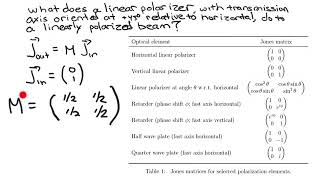 what does a linear polarizer, with transmission
axis oriented at +45° relative to horizontal, do to
a linearly polarized beam?
J out = M J in
J in = (0 1)
M = (1/2 1/2
1/2 1/2)
Optical element Jones matrix
Horizontal linear polarizer (1 0 0 0)
Vertical linear polarizer (0 0 0 1)
Linear polarizer at angle θ w.r.t. horizontal (cos²θ cosθ sinθ cosθ sinθ sin²θ)
Retarder (phase shift ϕ; fast axis horizontal)
Retarder (phase shift ϕ; fast axis vertical)
Half wave plate (fast axis horizontal)
Quarter wave plate (fast axis horizontal)
Table 1: Jones matrices for selected polarization elements.